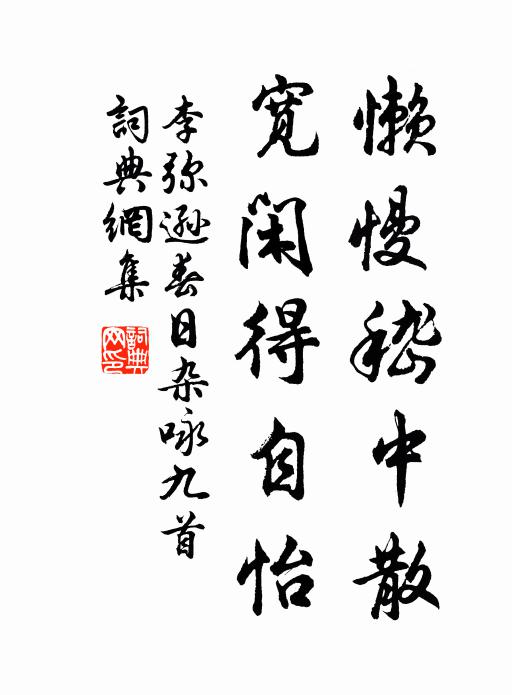 懒慢嵇中散
宽闲得自怡
李弥逊春日杂咏九首
词典網集
詞典网印